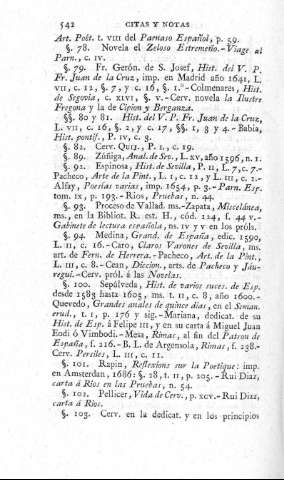 542 CITAS Y NOTAS
Art. Poét. t. VIII del Parnaso Español, p. 59.
§. 78. Novela el Zeloso Estremeño.-Viage al
Parn., c. IV.
§. 79. Fr. Gerón. de S. Josef, Hist. del V. P.
Fr. Juan de la Cruz, imp. en Madrid año 1641, L.
VII, c. 12, §. 7, y c. 16, §. 1.º-Colmenares, Hist.
de Segovia, c. XLVI, §. V.-Cerv. novela la Ilustre
Fregona y la de Cipion y Berganza.
§§. 80 y 81. Hist. del V. P. Fr. Juan de la Cruz,
L. VII, c. 16, §. 2, y c. 17, §§. 1, 3 y 4.-Babia,
Hist. pontif., P. IV, c. 3.
§. 82. Cerv. Quij., P. I., c. 19.
§. 89. Zúñiga, Anal. de Sev., L. XV, año 1596, n. 1.
§. 92. Espinosa, Hist. de Sevilla, P. II, L. 7, c. 7.-
Pacheco, Arte de la Pint., L. 1, c. 12, y L. III, c. 2.-
Alfay, Poesías varias, imp. 1654, p. 3.-Parn. Esp.
tom. IX, p. 193.-Rios, Pruebas, n. 44.
§. 93. Proceso de Vallad. ms.-Zapata, Miscelánea,
ms., en la Bibliot. R. est. H, cód. 124, f. 44 v.-
Gabinete de lectura española, ns. IV y V en los próls.
§. 94. Medina, Grand. de España, edic. 1590,
L. II, c. 16.-Caro, Claros Varones de Sevilla, ms.
art. de Fern. de Herrera.-Pacheco, Art. de la Pint.,
L. III, c. 8.-Cean, Diccion., arts. de Pacheco y Jáu-
regui.-Cerv. pról. á las Novelas.
§. 100. Sepúlveda, Hist. de varios suces. de Esp.
desde 1583 hasta 1605, ms. t. II, c. 8, año 1600.-
Quevedo, Grandes anales de quince dias, en el Seman.
erud., t. I, p. 176 y sig.-Mariana, dedicat. de su
Hist. de Esp. á Felipe III, y en su carta á Miguel Juan
Eodi ó Vimbodi.-Mesa, Rimas, al fin del Patron de
España, f. 216.-B. L. de Argensola, Rimas, f. 238.-
Cerv. Persiles, L. III, c. 11.
§. 101. Rapin, Reflexions sur la Poetique: imp.
en Amsterdan, 1686: §. 28, t. II, p. 205.-Rui Diaz,
carta á Rios en las Pruebas, n. 54.
§. 102. Pellicer, Vida de Cerv., p. XCV.-Rui Diaz,
carta á Rios.
§. 103. Cerv. en la dedicat. y en los principios